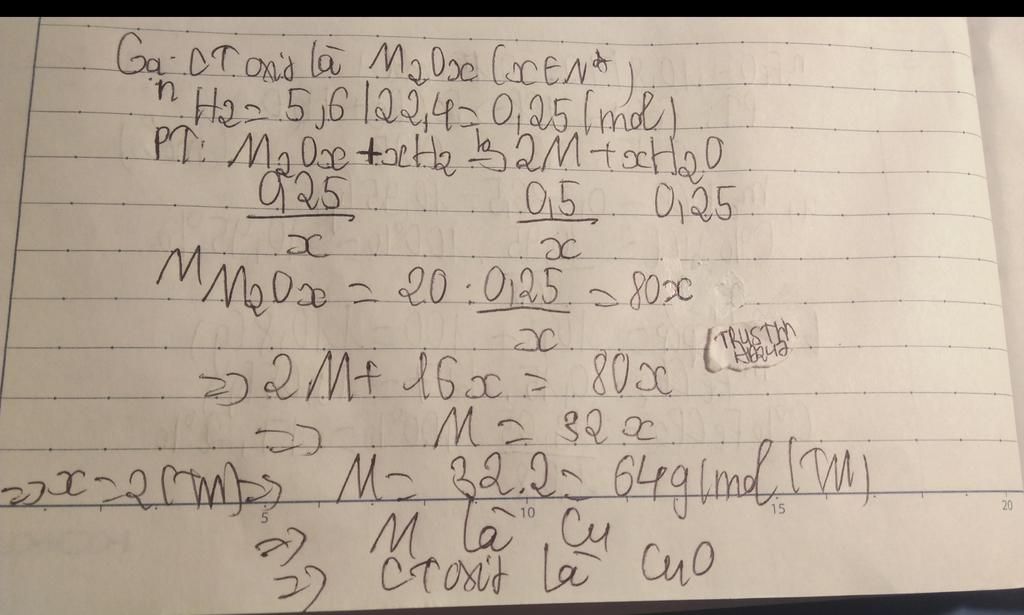 Gọi CT oxit là M₂Oₓ (x∈N*)
nH₂ = 5,6/22,4 = 0,25 (mol)
PT: M₂Oₓ + xH₂ → 2M + xH₂O
0,25/x 0,5/x 0,25
M M₂Oₓ = 20 : 0,25/x = 80x
TRUSTIN
⇒ 2M + 16x = 80x
⇒ M = 32x
⇒ x = 2 (TM) ⇒ M = 32.2 = 64g/mol (TM)
5 10 15 20
⇒ M là Cu
⇒ CT oxit là CuO